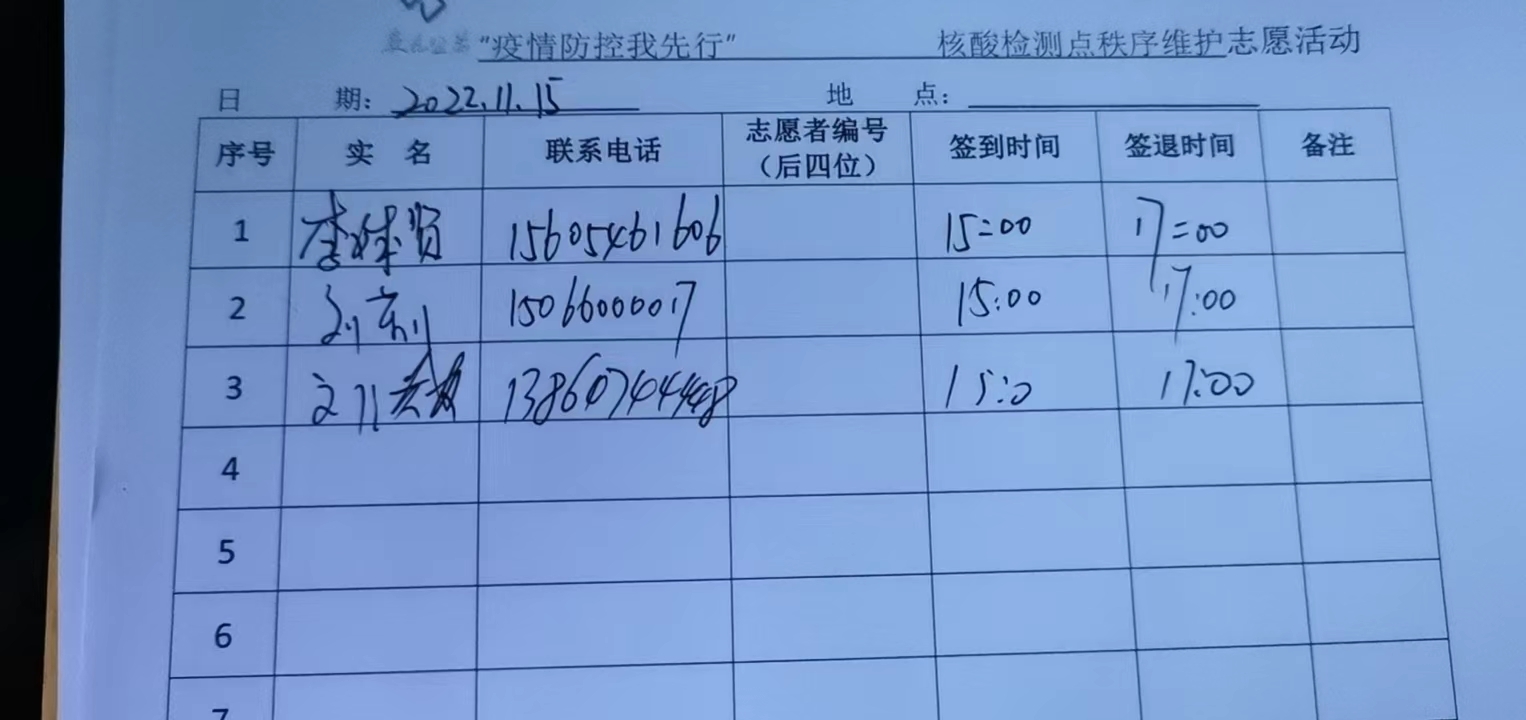 “疫情防控我先行” 核酸检测点秩序维护志愿活动
日 期：2022.11.15 地 点：
序号 实 名 联系电话 志愿者编号（后四位） 签到时间 签退时间 备注
1 李 贤 15605461606 15:00 17:00
2 刘 15066000017 15:00 17:00
3 刘 13860744448 15:0 17:00
4
5
6
7